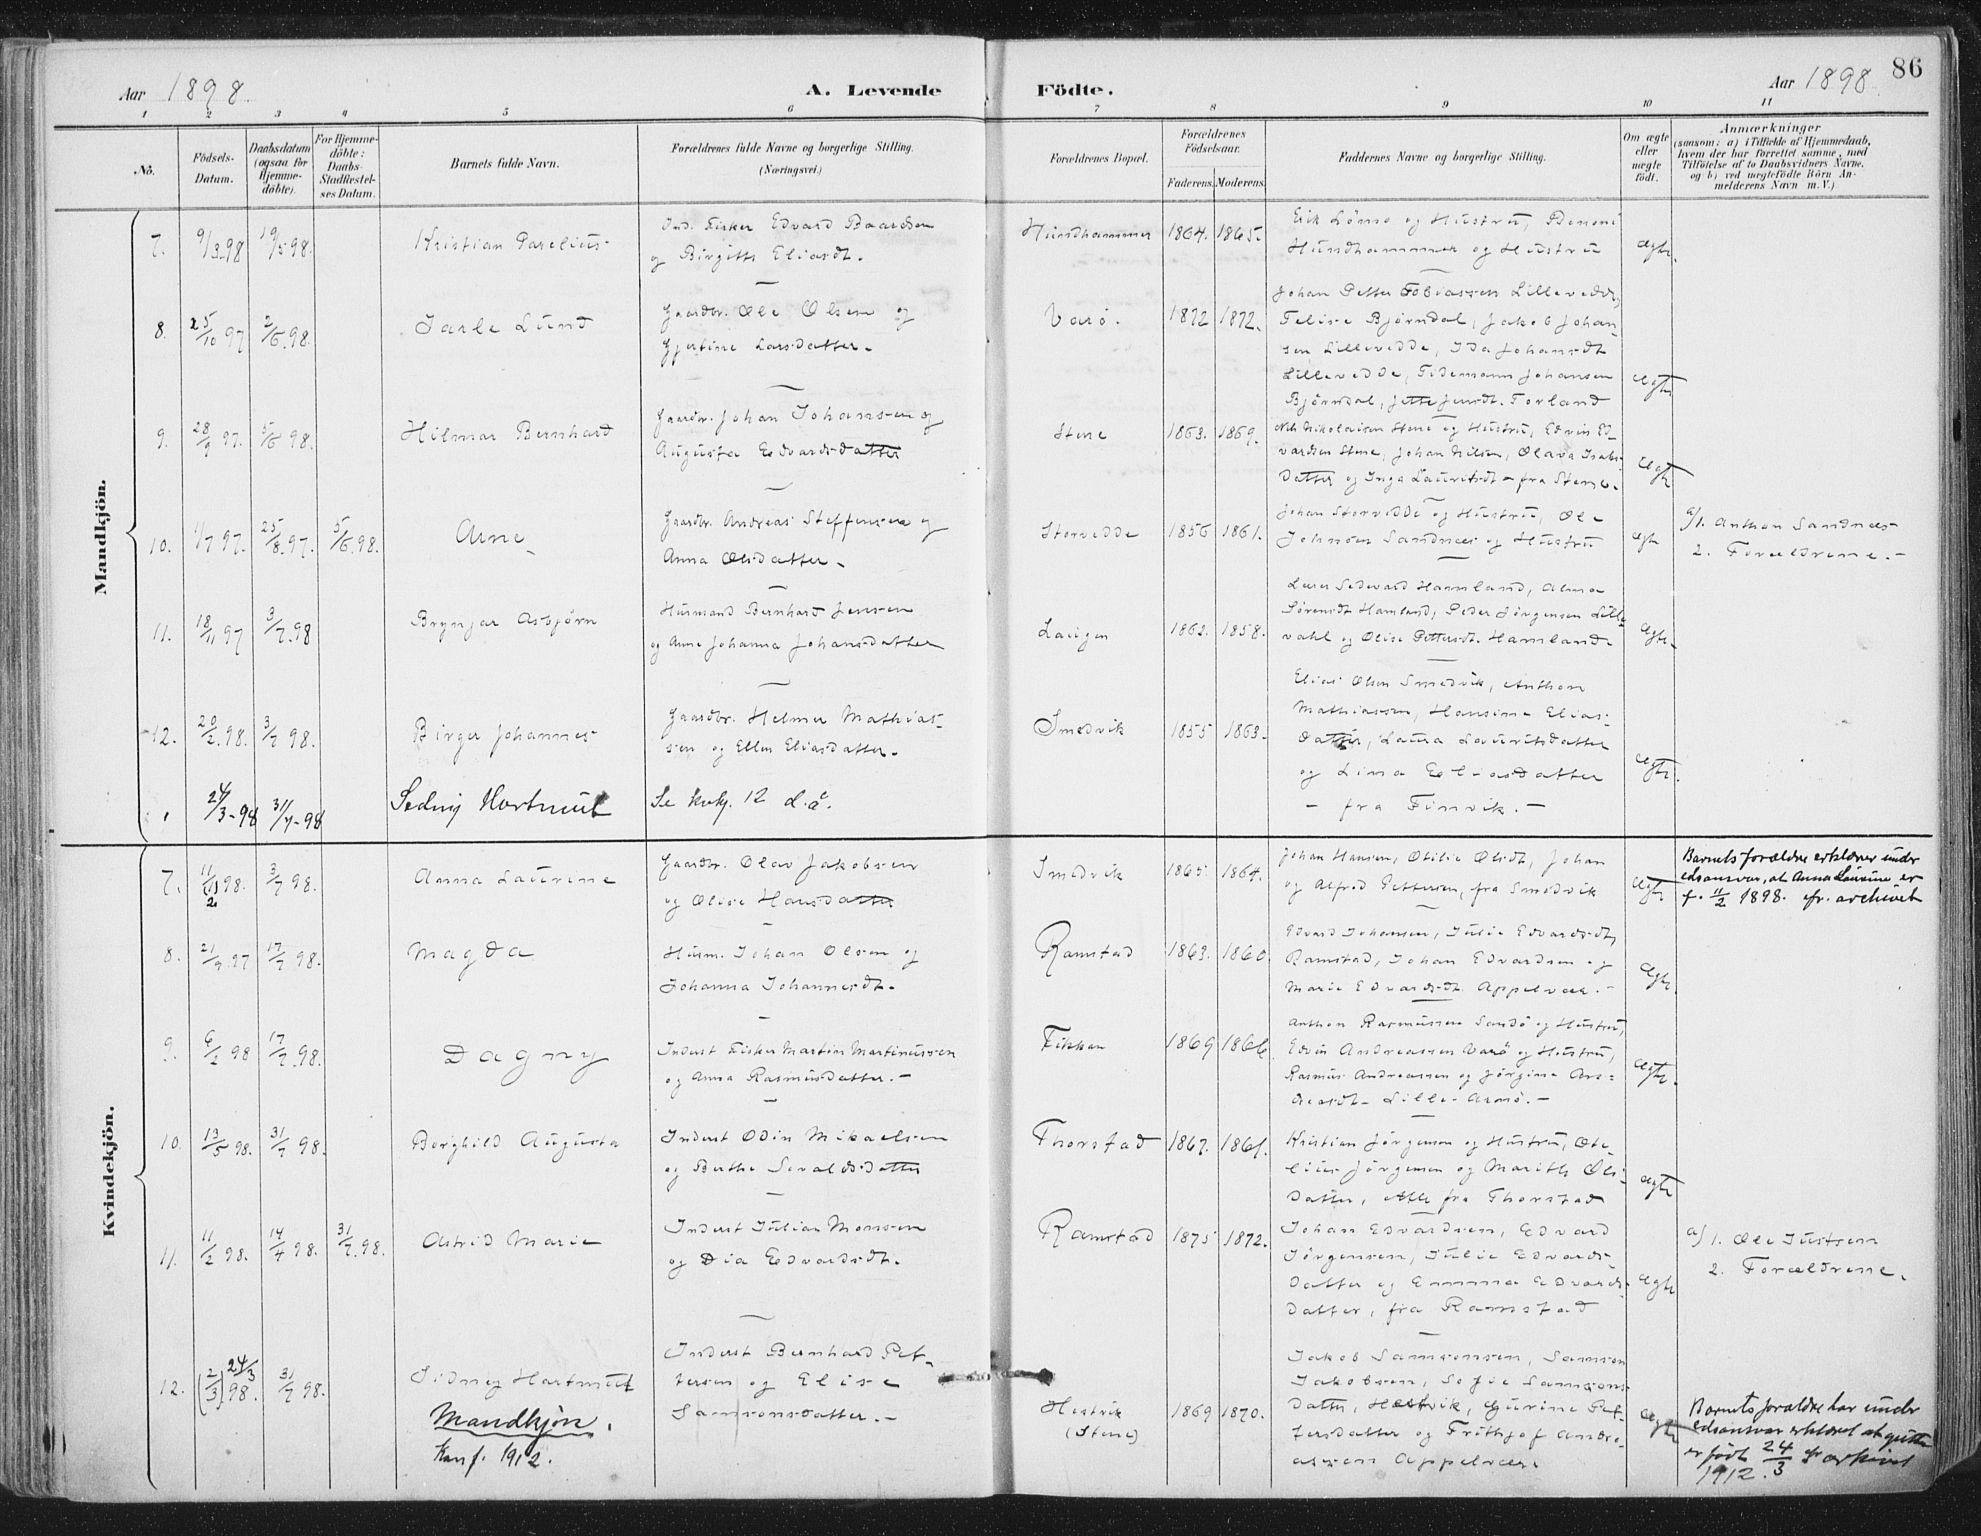 Aar 1898.
A. Levende
Födte.
Aar 1898.
86
1 2 3 4 5 6 7 8 9 10 11
No.
Födsels-
Datum.
Daabsdatum
(ogsaa for
Hjemme-
döbte).
For Hjemme-
döbte:
Daabs-
Stadfæstel-
ses Datum.
Barnets fulde Navn.
Forældrenes fulde Navne og borgerlige Stilling.
(Næringsvei.)
Forældrenes Bopæl.
Forældrenes
Födselsaar.
Faderens. Moderens.
Faddernes Navne og borgerlige Stilling.
Om ægte
eller
uægte
födt.
Anmærkninger
(saasom: a) i Tilfælde af Hjemmedaab,
hvem der har forrettet samme, med
Tilföielse af to Daabsvidners Navne,
og b) ved uægtefödte Börn An-
melderens Navn m. V.)
Mandkjön.
7. 9/3.98 19/5 98. Kristian Parelius
Ind. Fisker Edvard Baardsen
og Birgitte Eliasdt.
Hundhammer 1864. 1865.
Erik Lönnö og Hustru, Benoni
Hundhammer og Hustru
ægte.
8. 25/10 97 2/6.98. Jarle Lund
Gaardbr. Ole Olsen og
Gjertine Larsdatter.
Varö. 1872 1872.
Johan Petter Tobiassen Lillevedde,
Felise Bjørndal, Jakob Johan-
sen Lillevedde, Ida Johansdt
Lillevedde, Tidemann Johansen
Bjørndal, Jette Jensdt. Forland
ægte
9. 28/9 97. 5/6 98. Hilmar Bernhard
Gaardbr. Johan Johansen og
Augusta Edvardsdatter
Stene 1863. 1869.
Nikolaisen Stene og Hustru, Edvin Ed-
vardsen Stene, Johan Nilsen, Olava Isaks-
datter og Inga Lauritsdt fra Stene.
ægte
10. 1/7 97. 25/8.97. 5/6.98. Arne
Gaardbr. Andreas Steffensen og
Anna Olsdatter.
Storvedde 1856 1861.
Johan Storvedde og Hustru, Ole
Johnsen Sandnæs og Hustru
ægte
a/1. Anthon Sandnæs
2. Forældrene.
11. 18/11 97 3/7.98 Brynjar Asbjørn
Husmand Bernhard Jensen
og Anne Johanna Johansdatter
Laugen 1862. 1858.
Lærer Sedevard Hamland, Alma
Sörensdt Hamland, Peder Jørgensen Lille-
vahl og Olise Pettersdt. Hamland
ægte.
12. 20/2.98. 3/7 98. Birger Johannes
Gaardbr. Helmer Mathias-
sen og Ellen Eliasdatter.
Smedvik 1855 1863.
Elias Olsen Smedvik, Anthon
Mathiassen, Hansine Elias-
datter, Laura Lauritsdatter
og Lina Eliasdatter
- fra Finvik. -
ægte.
24/3-98 31/7-98 Sednij Hartmut Se kvkj. 12 d. å.
Kvindekjön.
7. 11/2 98. 3/7 98. Anna Laurine
Gaardbr. Olav Jakobsen
og Olise Hansdatter
Smedvik 1865. 1864.
Johan Hansen, Otilie Olsdt, Johan
og Alfred Pettersen, fra Smedvik
ægte
Barnets forældre erklærer under
edsansvar, at Anna Laurine er
f. 11/2 1898. cfr. archivet
8. 21/9.97 17/7 98. Magda
Husm. Johan Olsen og
Johanna Johannesdt.
Ramstad 1863. 1860.
Edvard Johansen, Julie Edvardsdt,
Ramstad, Johan Edvardsen og
Marie Edvardsdt. Appelvær. -
ægte.
9. 6/2 98 17/7.98. Dagny
Inderst Fisker Martin Martinussen
og Anna Rasmusdatter. -
Fikkan 1869 1866
Anthon Rasmussen Sandö og Hustru,
Edvin Andreassen Varö og Hustru,
Rasmus Andreassen og Jørgine An-
dreasdt- Lille-Arnö. -
ægte.
10. 13/5 98. 31/7 98. Borghild Augusta
Inderst Odin Mikaelsen
og Berthe Sevaldsdatter
Thorstad 1867. 1861.
Kristian Jørgensen og Hustru, Ote-
lius Jørgensen og Marith Ols-
datter, Alle fra Thorstad
ægte
11. 11/2 98. 14/4 98. 31/7.98. Astrid Marie
Inderst Julian Monsen
og Dia Edvardsdt.
Ramstad 1875 1872.
Johan Edvardsen, Edvard
Jørgensen, Julie Edvards-
datter og Emma Edvards-
datter, fra Ramstad
ægte
a/1. Ole Justsen
2. Forældrene.
12. (2/3) 24/3 98. 31/7 98. Sidney Hartmut
Mandkjön.
Konf. 1912.
Inderst Bernhard Pet-
tersen og Elise
Samsonsdatter. -
Hestvik
(Stene)
1869 1870.
Jakob Samsonsen, Samson
Jakobsen, Sofie Samsons-
datter, Hestvik, Gurine Pet-
tersdatter og Frithjof Andre-
assen Appelvær
ægte
Barnets forældre har under
edsansvar erklæret at gutten
er født 24/3 cfr arkivet
1912.